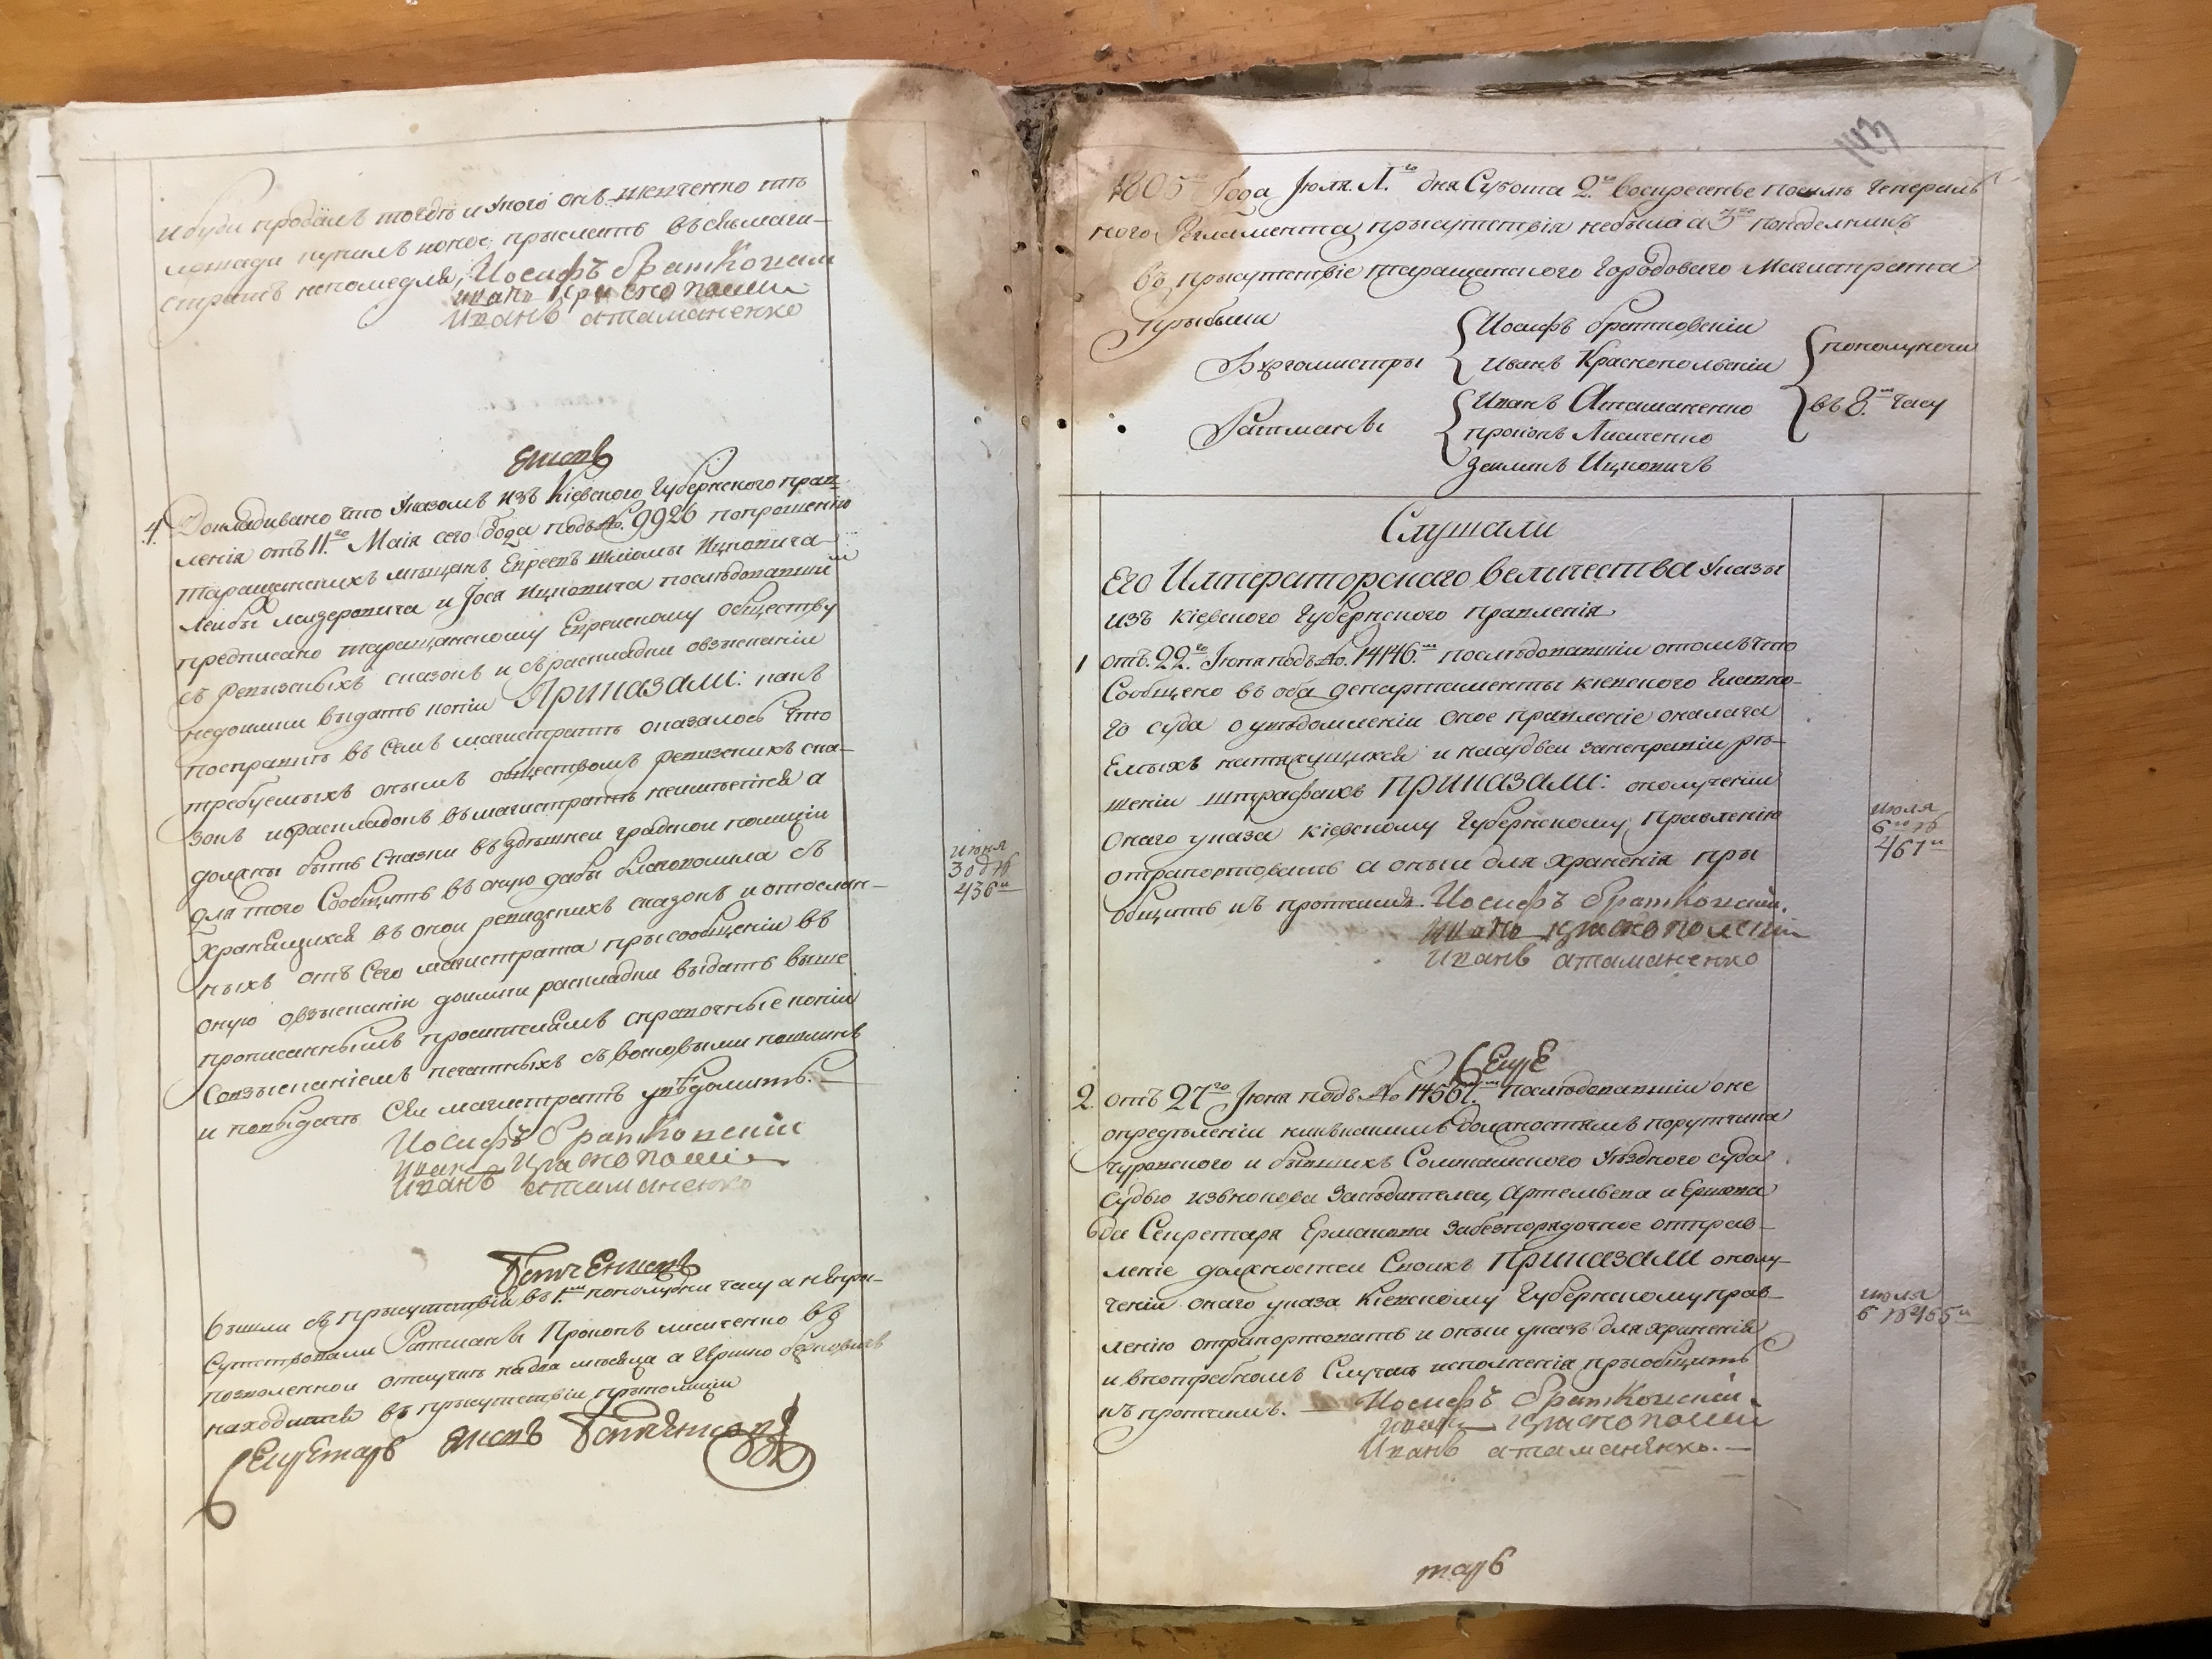 и буди продалъ тогдѣ и укого онъ шевченко тѣ
лошади купилъ коное, прыслать въ сѣй маги-
стратъ непомедля, Иосифъ Братковскии
иванъ Краснополски
Иванъ атаманенко
4. Докладивано что Указомъ изъ Кіевского Губернского прав
ленія отъ 11.го Маія сего года подъ No. 9926 попрошенію
таращанскихъ мѣщанъ Евреевъ шліомы Ицковича
Лейбы Лейзеровича и Іося Ицковича последовавшимъ
предписано таращанскому Еврейскому обществу
съ ревизскихъ сказокъ и съ раскладки овзысканіи
недоимки выдать копіи Приказали: какъ
посправкѣ въ семъ магистратѣ оказалось что
требуемыхъ онымъ обществомъ ревизскихъ ска-
зокъ и раскладокъ въ магистратѣ неимѣется а
должны быть сказки въ здѣшней градской полиціи
для того Сообщить въ оную дабы благоволила съ
хранящихся въ оной ревизскихъ сказокъ и отослан-
ныхъ отъ сего магистрата прысообщеніи въ
оную овзысканіи доимки раскладки выдать выше
прописаннымъ просителямъ справочные копіи
совзысканіемъ печатныхъ съ восковыми пошлинъ
и повыдачѣ Сей магистратъ увѣдомить.
июня
30 д №
436
Иосифъ Братковскіи
иванъ Краснополски
Иванъ атаманенко
вышли съ прысутствія въ 1.м пополудни часу а непри-
сутствовали Ратманы Прокопъ лисиченко въ
позволенной отлучкѣ на два мѣсяца а Гершко берковичъ
находится въ прысутствіи прыполиціи
Секретарь
143
1805 Года Іюля 1.го дня Субота 2.го воскресенье посилѣ Генераль
ного Регламента прысутствія небыла а 3го понеделникъ
въ прысутствіе таращанского Городового Магистрата
Прыбыли
Бургомистры { Иосифъ братковскіи
Иванъ Краснополскіи
} пополуночи
въ 8.м часу
Ратманы { Иванъ Атаманенко
прокопъ Лисиченко
Зелманъ Ицковичъ
Слушали
Его Императорскаго величества Указы
изъ кіевского Губернского правленія
1 отъ. 22.го Іюня подъ No. 14146.м последовавшіи отомъ что
Сообщено въ оба департаменты кіевского Главно-
го суда о увѣдомленіи оное правленіе
шеніи штрафахъ Приказали: ополученіи
онаго указа кіевскому Губернскому Правленію
отрапортовать а оный для храненія пры
общить къ протчимъ. Иосифъ Братковскіи.
июля
6го №
461
иванъ краснополскіи
Иванъ атаманенко
Еще
2. отъ 27го Іюня подъ No 14567.м последовавшіи оне
опредѣленіи никъкакимъ должностямъ порутчика
чуражского и бывшихъ Солтамского Уѣзднаго суда
Судью извнокова Засѣдателей, Артемьева и Ершова
да Секретаря Ермакова забезпорядочное отправ-
леніе должностей Своихъ Приказали ополу-
ченіи онаго указа Кіевскому Губернскому прав-
ленію отрапортовать и оный указъ для храненія
и впотребномъ Случаѣ исполненія прыобщить
къ протчимъ. Иосифъ Братковскіи
июля
6 №465
иванъ краснополски
Иванъ атаманенко.
тарь